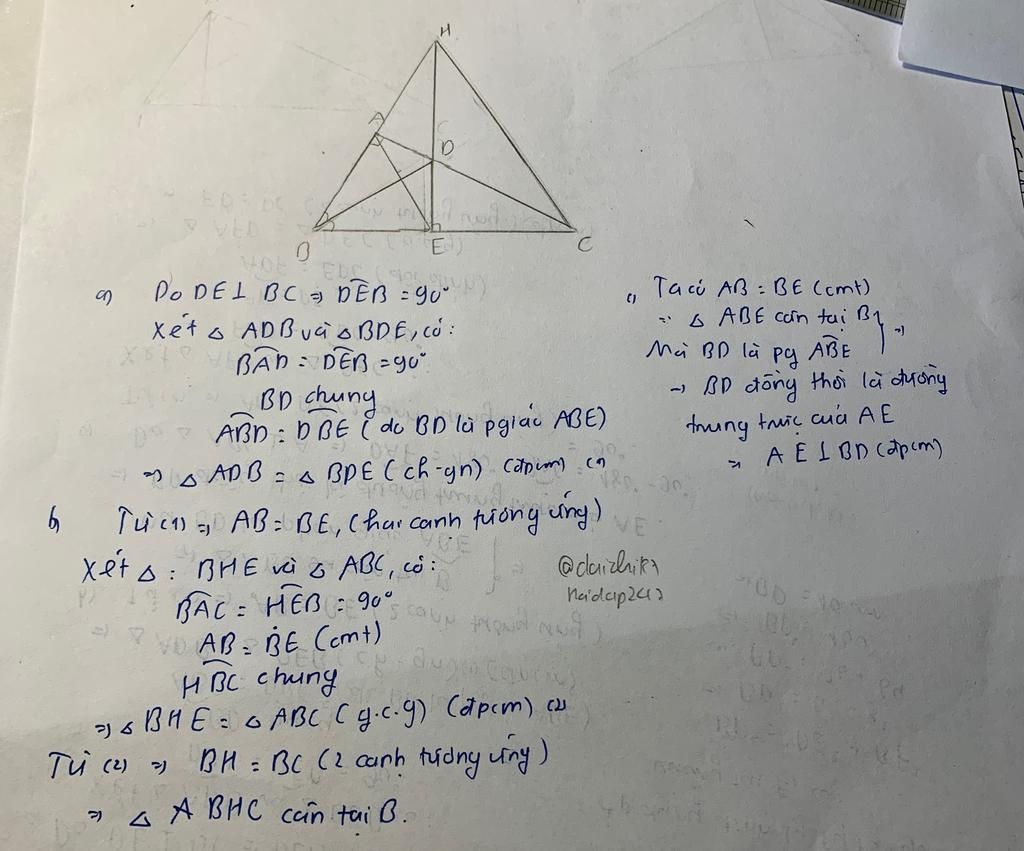 H
A
C
D
B
E
C
a) Do DE ⊥ BC ⇒ DÊB = 90°
Xét △ ADB và △ BDE, có:
BÂD = DÊB = 90°
BD chung
ABD̂ = DB̂E ( do BD là pgiác ABE)
⇒ △ ADB = △ BDE ( ch-gn) (đpcm) (1)
b, Từ (1) ⇒ AB = BE, (hai cạnh tương ứng)
Xét △ : BHE và △ ABC, có:
BÂC = HÊB = 90°
AB = BE (cmt)
HB̂C chung
⇒ △ BHE = △ ABC ( g.c.g) (đpcm) (2)
Từ (2) ⇒ BH = BC ( 2 cạnh tương ứng )
⇒ △ A BHC cân tại B.
c, Ta có AB = BE (cmt)
⇒ △ ABE cân tại B } ⇒
Mà BD là pg AB̂E
→ BD đồng thời là đường
trung trực của AE
⇒ AE ⊥ BD (đpcm)